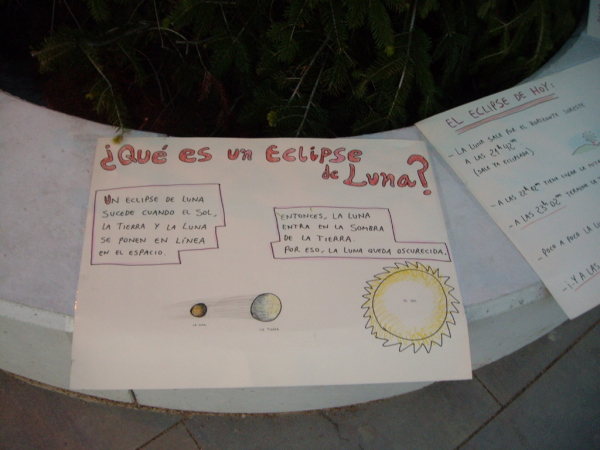 ¿Qué es un Eclipse
de Luna?
Un eclipse de luna
sucede cuando el Sol,
la Tierra y la Luna
se ponen en línea
en el espacio.
Entonces, la Luna
entra en la sombra
de la Tierra.
Por eso, la Luna queda oscurecida.
La Luna
La Tierra
El Sol
EL ECLIPSE DE HOY:
- La Luna sale por el horizonte
a las
(sale ya eclipsada)
- A las
- A las
- Poco a poco la
- ¡Y a las